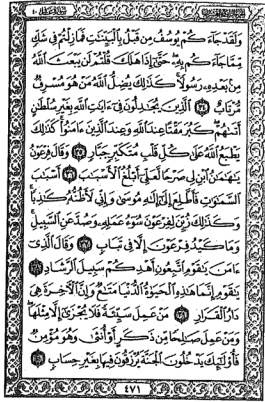 وَلَقَدْ جَاءَكُمْ يُوسُفُ مِن قَبْلُ بِالْبَيِّنَاتِ فَمَا زِلْتُمْ فِي شَكٍّ
مِّمَّا جَاءَكُم بِهِ حَتَّىٰ إِذَا هَلَكَ قُلْتُمْ لَن يَبْعَثَ اللَّهُ
مِن بَعْدِهِ رَسُولًا كَذَٰلِكَ يُضِلُّ اللَّهُ مَنْ هُوَ مُسْرِفٌ
مُّرْتَابٌ ٣٤ الَّذِينَ يُجَادِلُونَ فِي آيَاتِ اللَّهِ بِغَيْرِ سُلْطَانٍ
أَتَاهُمْ كَبُرَ مَقْتًا عِندَ اللَّهِ وَعِندَ الَّذِينَ آمَنُوا كَذَٰلِكَ
يَطْبَعُ اللَّهُ عَلَىٰ كُلِّ قَلْبِ مُتَكَبِّرٍ جَبَّارٍ ٣٥ وَقَالَ فِرْعَوْنُ
يَا هَامَانُ ابْنِ لِي صَرْحًا لَّعَلِّي أَبْلُغُ الْأَسْبَابَ ٣٦ أَسْبَابَ
السَّمَاوَاتِ فَأَطَّلِعَ إِلَىٰ إِلَٰهِ مُوسَىٰ وَإِنِّي لَأَظُنُّهُ كَاذِبًا
وَكَذَٰلِكَ زُيِّنَ لِفِرْعَوْنَ سُوءُ عَمَلِهِ وَصُدَّ عَنِ السَّبِيلِ
وَمَا كَيْدُ فِرْعَوْنَ إِلَّا فِي تَبَابٍ ٣٧ وَقَالَ الَّذِي
آمَنَ يَا قَوْمِ اتَّبِعُونِ أَهْدِكُمْ سَبِيلَ الرَّشَادِ ٣٨
يَا قَوْمِ إِنَّمَا هَٰذِهِ الْحَيَاةُ الدُّنْيَا مَتَاعٌ وَإِنَّ الْآخِرَةَ هِيَ
دَارُ الْقَرَارِ ٣٩ مَنْ عَمِلَ سَيِّئَةً فَلَا يُجْزَىٰ إِلَّا مِثْلَهَا
وَمَنْ عَمِلَ صَالِحًا مِّن ذَكَرٍ أَوْ أُنثَىٰ وَهُوَ مُؤْمِنٌ
فَأُولَٰئِكَ يَدْخُلُونَ الْجَنَّةَ يُرْزَقُونَ فِيهَا بِغَيْرِ حِسَابٍ ٤٠
٤٧١